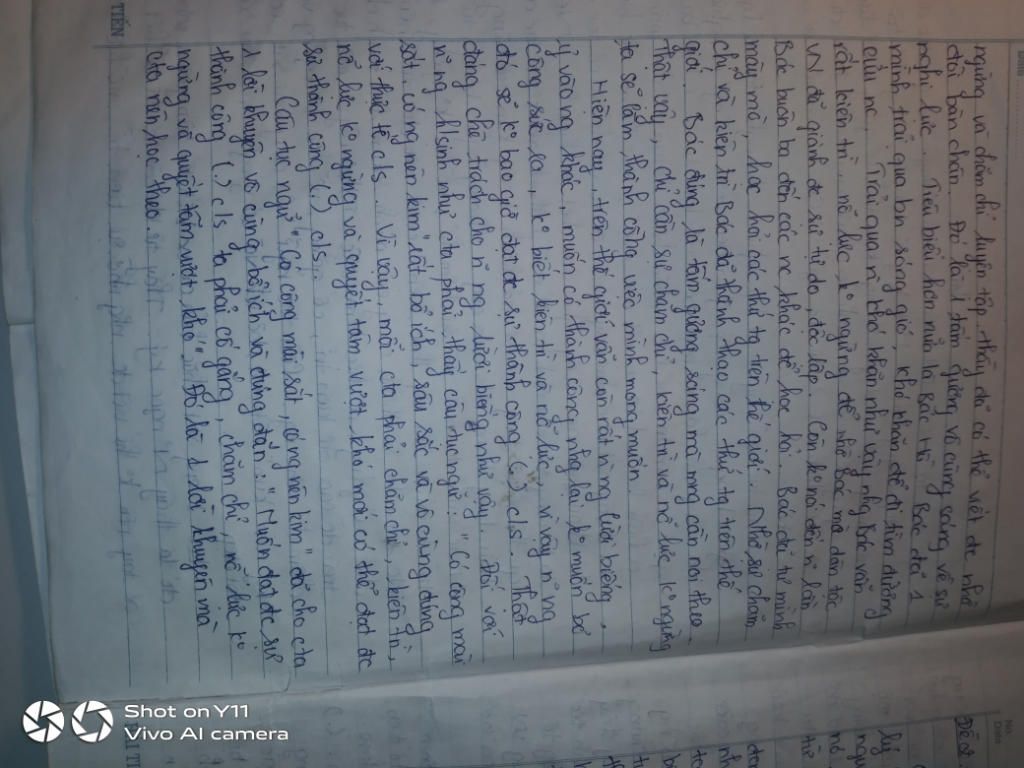 ngừng và chăm chỉ luyện tập thầy đã có thể viết đc nhờ
đôi bàn chân. Đó là 1 tấm gương vô cùng sáng về sự
nghị lực. Tiêu biểu hơn nữa là Bác Hồ. Bác đã 1
mình trải qua bn sóng gió, khó khăn để đi tìm đường
cứu nc. Trải qua n` khó khăn như vậy nhg Bác vẫn
rất kiên trì, nỗ lực ko ngừng để nhờ Bác mà dân tộc
VN đã giành đc sự tự do, độc lập. Còn ko nói đến n` lần
Bác buôn ba đến các nc khác để học hỏi. Bác đã tự mình
mày mò, học hỏi các thứ tg trên thế giới. Nhờ sự chăm
chỉ và kiên trì Bác đã thành thạo các thứ tg trên thế
giới. Bác đúng là tấm gương sáng mà mng cần noi theo.
Thật vậy, chỉ cần sự chăm chỉ, kiên trì và nỗ lực ko ngừng
ta sẽ làm thành công việc mình mong muốn.
Hiện nay, trên thế giới vẫn còn rất n` ng lười biếng,
ỷ vào ng khác, muốn có thành công nhg lại ko muốn bỏ
công sức ra, ko biết kiên trì và nỗ lực. vì vậy n` ng
đó sẽ ko bao giờ đạt đc sự thành công (.) c/s. Thật
đáng chê trách cho n` ng lười biếng như vậy. Đối với
n` ng h/sinh như cta phải thấy câu tục ngữ: "Có công mài
sắt, có ng nên kim" rất bổ ích, sâu sắc và vô cùng đúng
với thực tế c/s. Vì vậy, mỗi cta phải chăm chỉ, kiên trì,
nỗ lực ko ngừng và quyết tâm vượt khó mới có thể đạt đc
sự thành công (.) c/s.
Câu tục ngữ "Có công mài sắt, có ng nên kim" đã cho cta
1 lời khuyên vô cùng bổ ích và đúng đắn: "Muốn đạt đc sự
thành công (.) c/s ta phải cố gắng, chăm chỉ, nỗ lực ko
ngừng và quyết tâm vượt khó". Đó là 1 lời khuyên mà
cta nên học theo.
TIẾN
Shot on Y11
Vivo AI camera